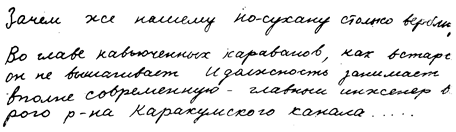 Зачем же нашему по-сукану столько верблю
Во главе навьюченных караванов, как встаре
он не вышагивает И должность занимает
вполне современную - главный инженер в
рого р-на Каракумского канала.....